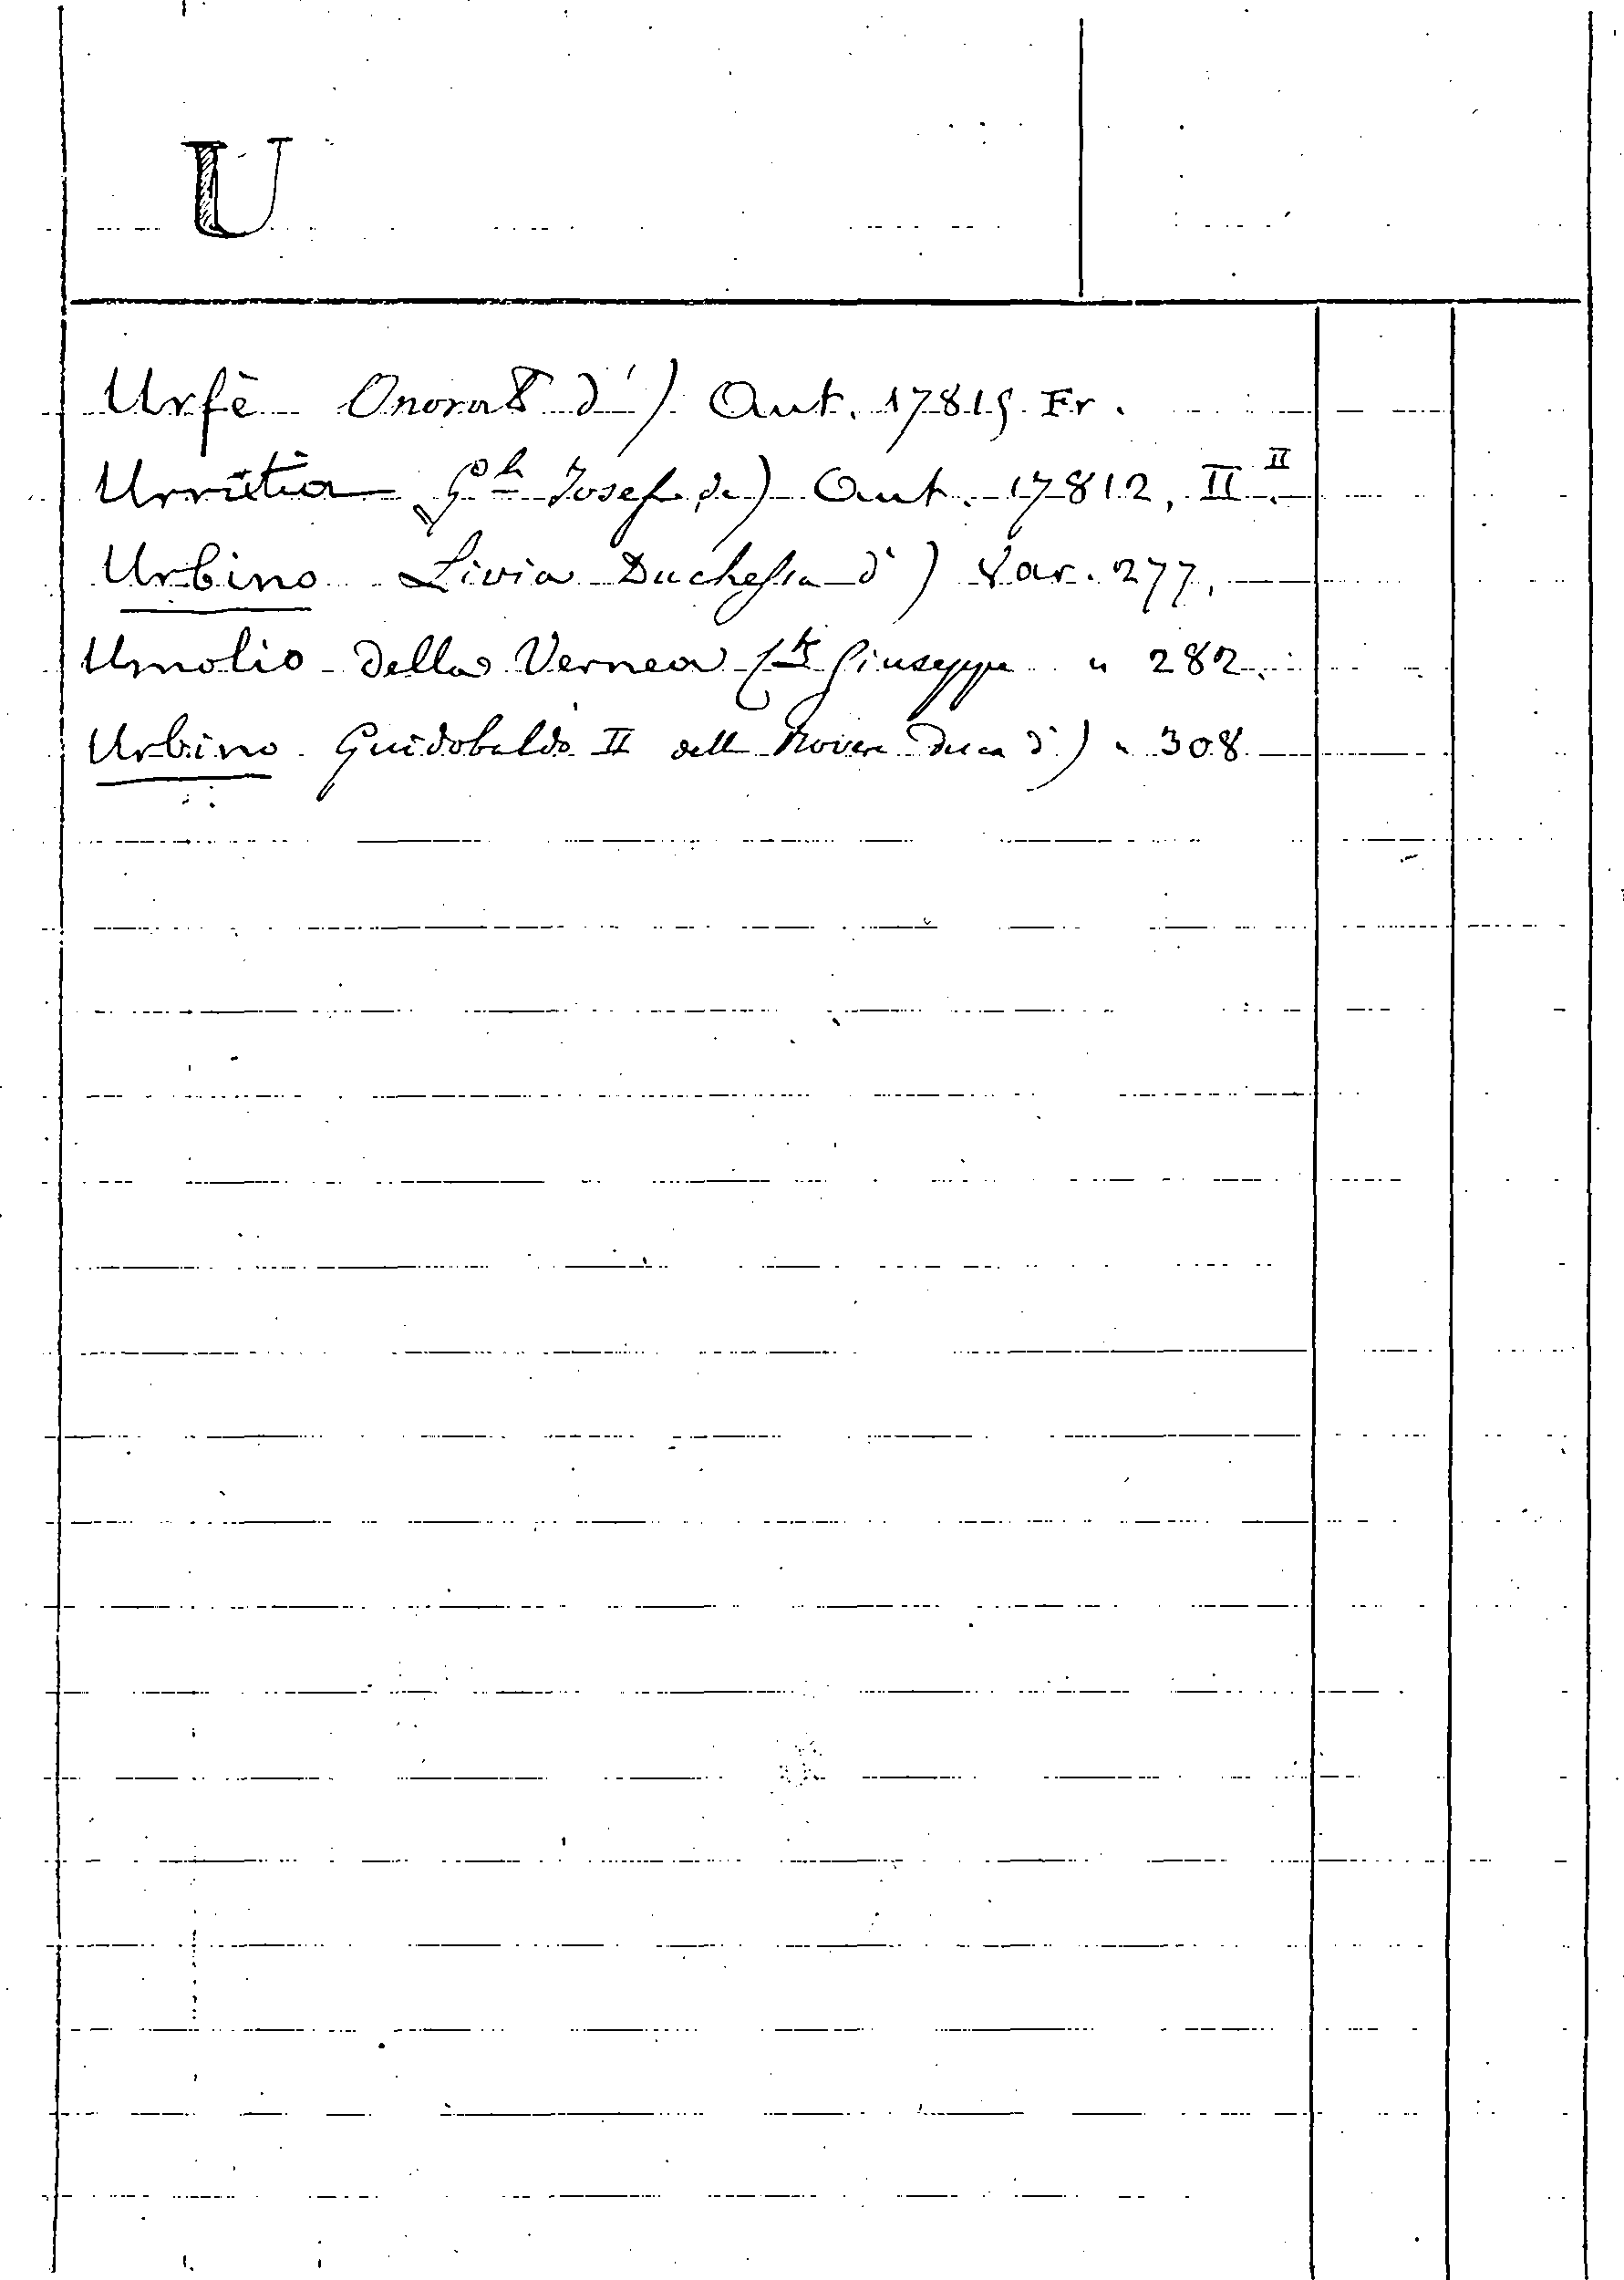 U
Urfè Onorato d') Aut. 17819 Fr.
Urrutia Josef de) Aut. 17812, II II
Urbino Livia Duchessa d') Var. 277.
Umolio della Vernea Cte Giuseppe " 282.
Urbino Guidobaldo II della Rovere Duca d') " 308